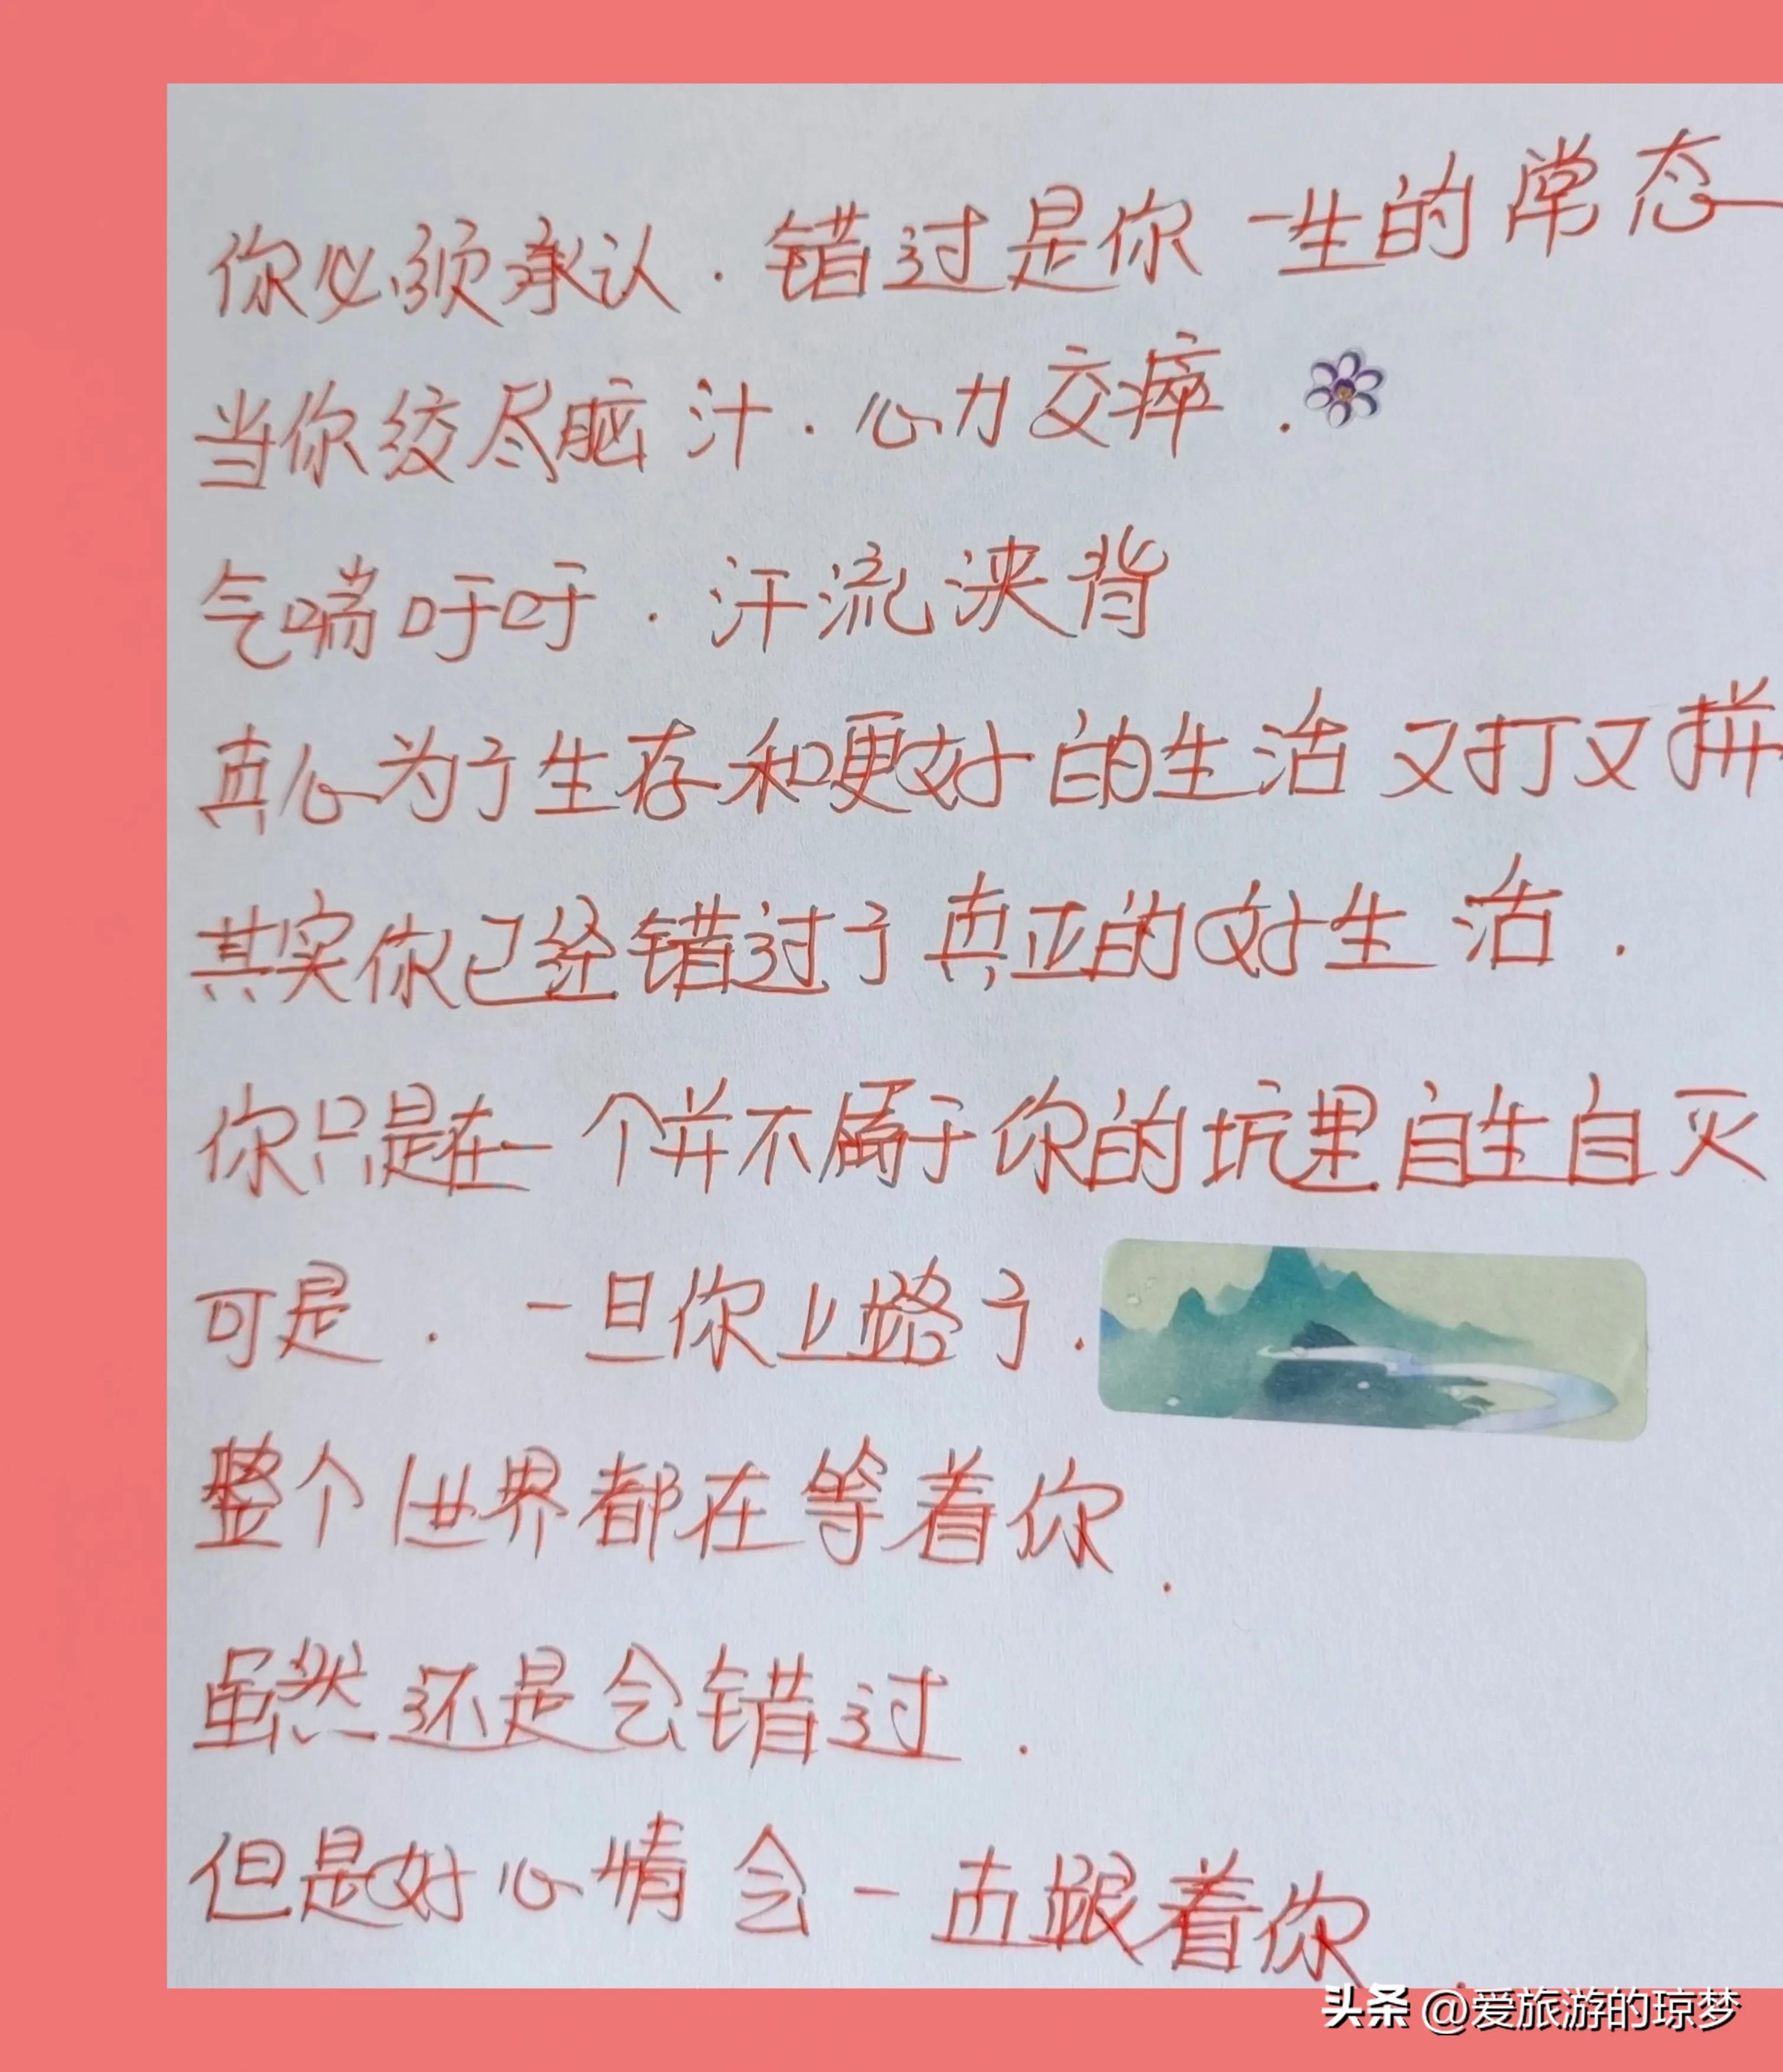 你必须承认．错过是你一生的常态
当你绞尽脑汁．心力交瘁．
气喘吁吁．汗流浃背
真心为了生存和更好的生活又打又拼
其实你已经错过了真正的好生活．
你只是在一个并不属于你的坑里自生自灭
可是．一旦你上路了．
整个世界都在等着你．
虽然还是会错过．
但是好心情会一直跟着你．
头条 @爱旅游的琼梦